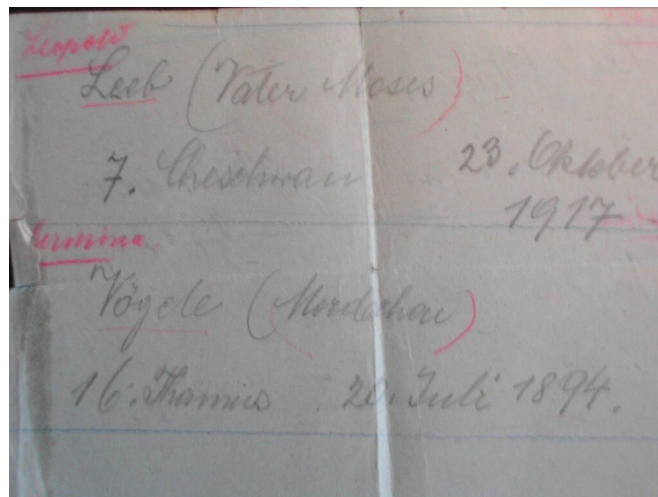 Leopold
Leeb (Vater Moses)
7. Cheschwan 23. Oktober
1917
Hermine
Vögele (Mordechai)
16. Thamus 20. Juli 1894.